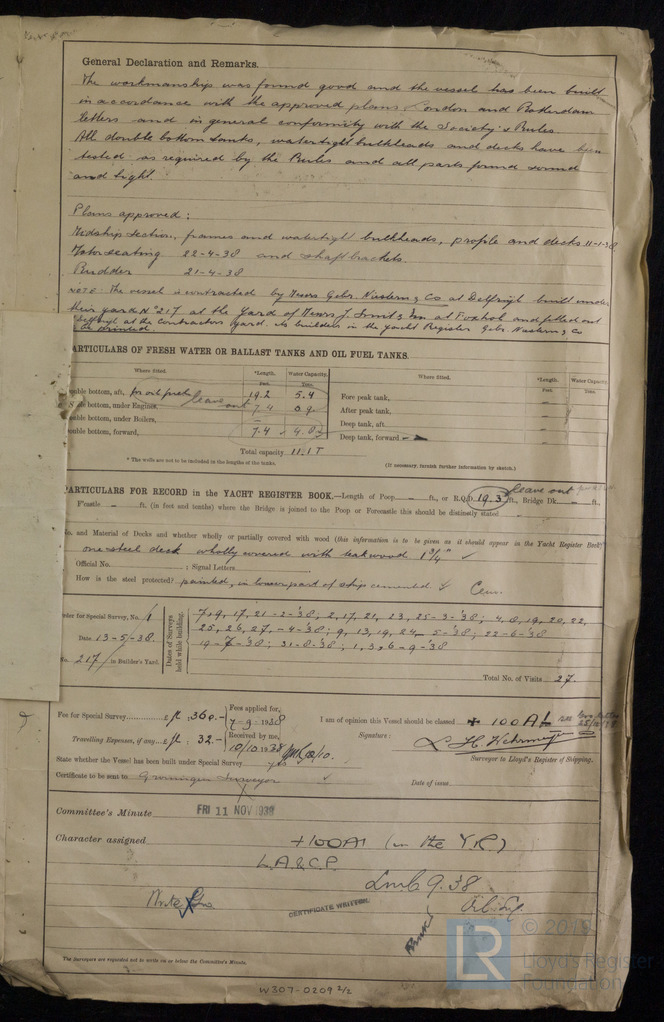 General Declaration and Remarks.
The workmanship was found good and the vessel has been built
in accordance with the approved plans, London and Rotterdam
letters and in general conformity with the Society's Rules.
All double bottom tanks, watertight bulkheads and decks have been
tested as required by the Rules and all parts found sound
and tight.
Plans approved:
Midship section, frames and watertight bulkheads, profile and decks 11-1-38
Motorseating 22-4-38 and shaft brackets.
Rudder 21-4-38
NOTE: The vessel is contracted by Messrs Gebr. & Co at Delfzijl built under
their yard No 217 at the yard of Messrs J. Smit & Zn at Foxhol and fitted out
at Delfzijl at the contractors yard. As builders in the Yacht Register Gebr. & Co
be printed
ARTICULARS OF FRESH WATER OR BALLAST TANKS AND OIL FUEL TANKS.
Where fitted. *Length. Water Capacity. Where fitted. *Length. Water Capacity.
Feet. Tons. Feet. Tons.
uble bottom, aft, for oil fuel 19.2 5.4 Fore peak tank, –
ble bottom, under Engines, leave out 7.4 0.9 After peak tank, –
uble bottom, under Boilers, – Deep tank, aft –
uble bottom, forward, 7.4 4.8 Deep tank, forward –
Total capacity 11.1 T
* The wells are not to be included in the lengths of the tanks.
(If necessary, furnish further information by sketch.)
ARTICULARS FOR RECORD in the YACHT REGISTER BOOK.—Length of Poop – ft., or R.Q.D. 19.3 ft., Bridge Dk. – ft., leave out
F'castle – ft. (in feet and tenths) where the Bridge is joined to the Poop or Forecastle this should be distinctly stated
o. and Material of Decks and whether wholly or partially covered with wood (this information is to be given as it should appear in the Yacht Register Book)
one steel deck wholly covered with teakwood 1 3/4"
Official No. ; Signal Letters
How is the steel protected? painted, in lower part of ship cemented Cem.
der for Special Survey, No. 1
Date 13-5-38.
No. 217 in Builder's Yard.
Dates of Surveys held while building.
7, 9, 17, 21-2-'38; 2, 17, 21, 23, 25-3-'38; 4, 8, 19, 20, 22,
25, 26, 27,-4-'38; 9, 13, 19, 24, 5-'38; 22-6-'38
19-7-'38; 31-8-'38; 1, 3, 6-9-38
Total No. of Visits 27.
Fee for Special Survey ƒ 360.-
Fees applied for, 7-9-1938
I am of opinion this Vessel should be classed + 100A1
Travelling Expenses, if any ƒ 32.-
Received by me, 10/10 1938
Signature:
Surveyor to Lloyd's Register of Shipping.
State whether the Vessel has been built under Special Survey yes
Certificate to be sent to Groningen Surveyor
Date of issue
Committee's Minute FRI 11 NOV 1938
Character assigned +100A1 (in the Y.R.)
L.A.&C.P.
LMC 9.38
Oil Eng.
CERTIFICATE WRITTEN.
The Surveyors are requested not to write on or below the Committee's Minute.
W307-0209 2/2
LR
© 2019
Lloyd's Register
Foundation